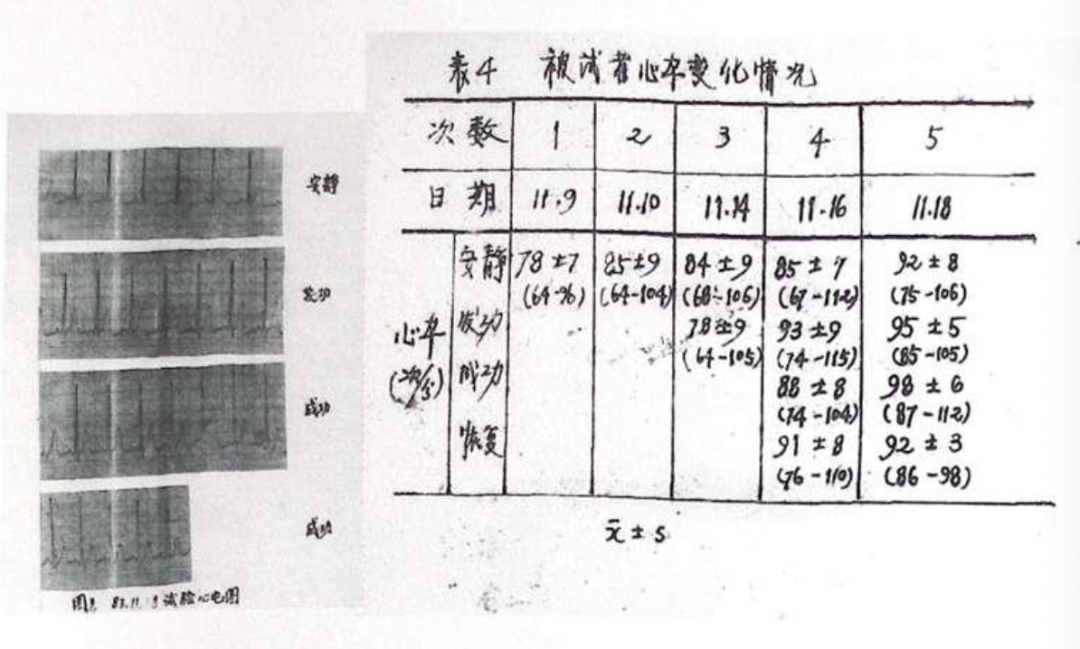 安静
发功
成功
成功
试验心电图
表4 被试者心率变化情况
次数 1 2 3 4 5
日期 11.9 11.10 11.14 11.16 11.18
心率
(次/分)
安静 78±7 85±9 84±9 85±7 92±8
(64-96) (64-104) (68-106) (67-112) (75-106)
发功 78±9 93±9 95±5
(64-105) (74-115) (85-105)
成功 88±8 98±6
(74-104) (87-112)
恢复 91±8 92±3
(76-110) (86-98)
x̄±s